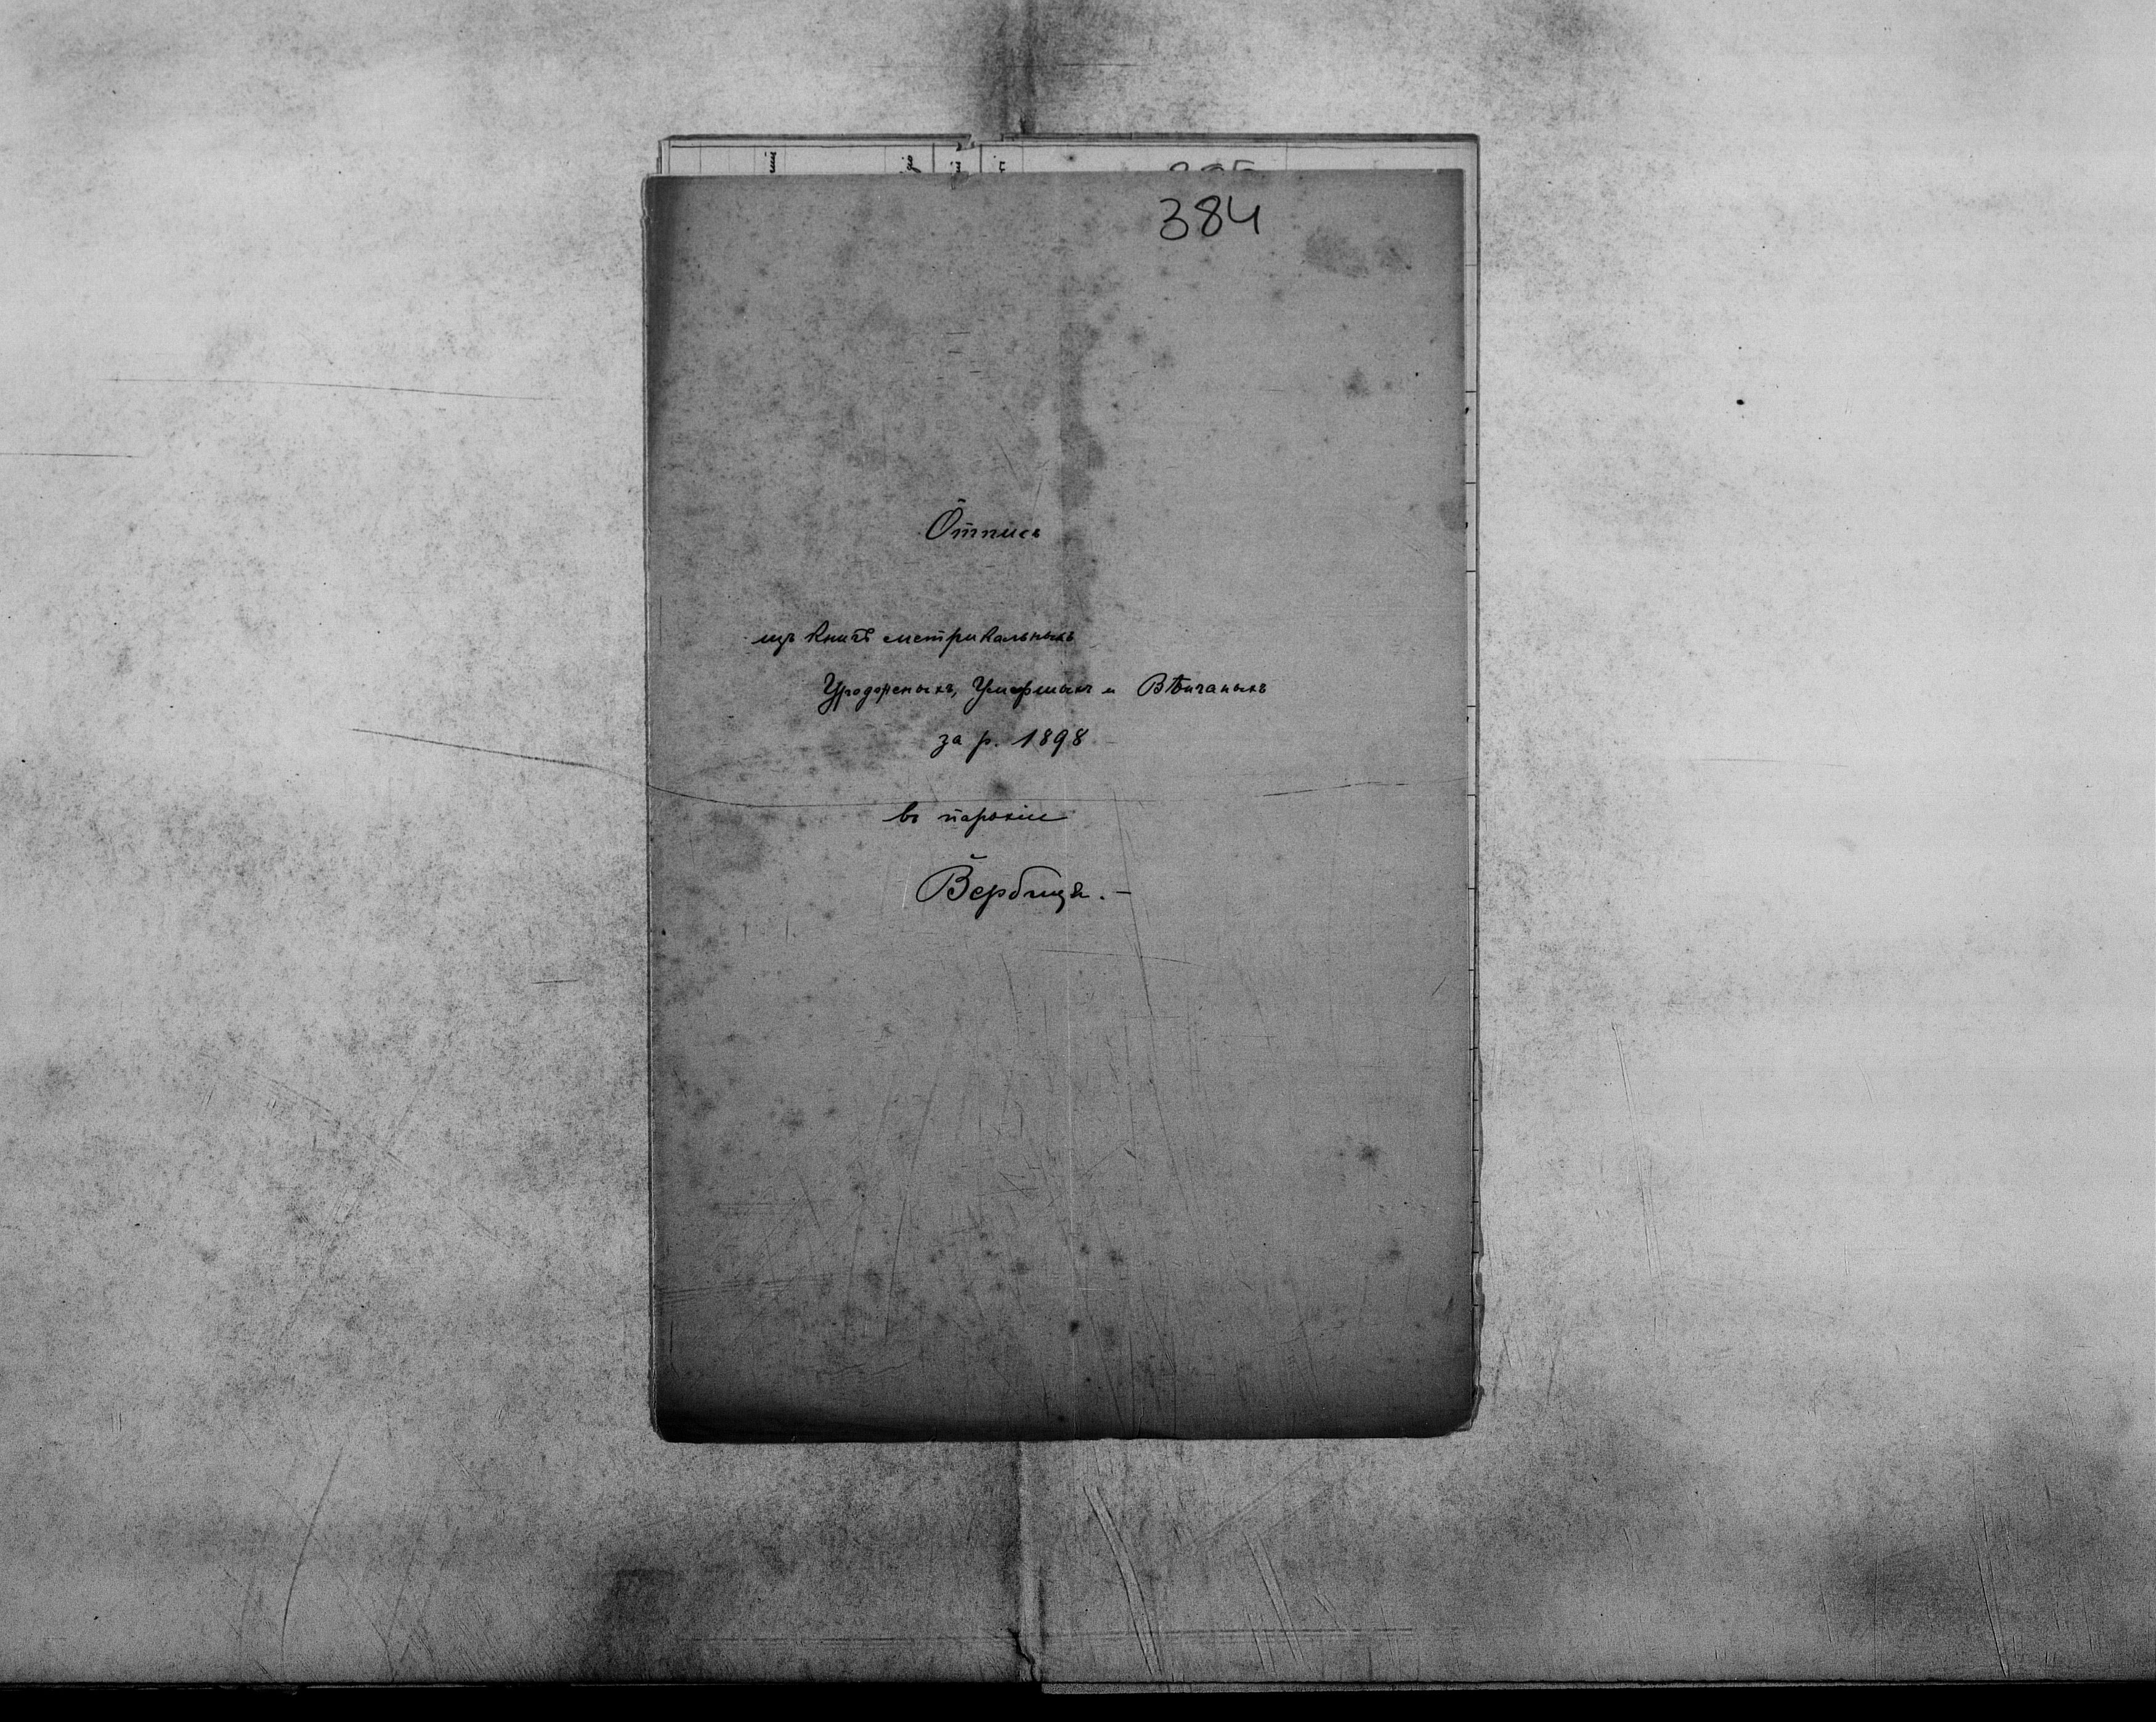 384
Отписъ
изъ книгъ метрикальныхъ
Уродженыхъ, Умершыхъ и Вѣнчаныхъ
за р. 1898
въ парохіи
Вербиця. –